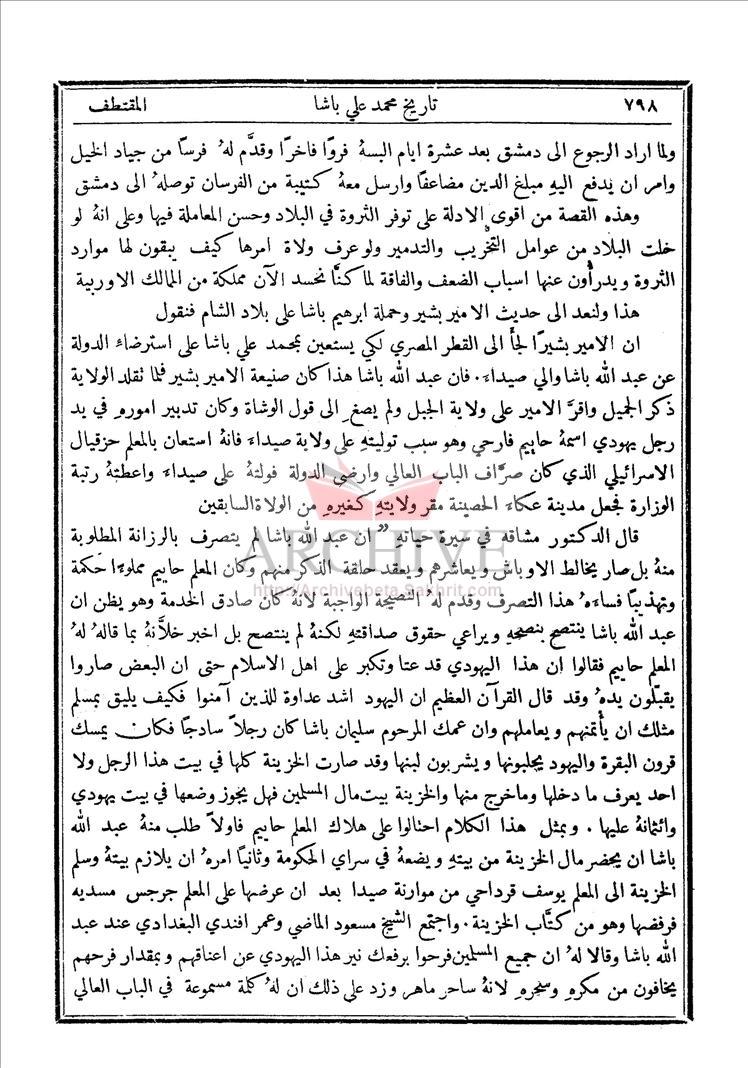 ٧٩٨ تاريخ محمد علي باشا المقتطف
ولما اراد الرجوع الى دمشق بعد عشرة ايام البسهُ فروًا فاخرًا وقدَّم لهُ فرسًا من جياد الخيل
وامر ان يدفع اليهِ مبلغ الدين مضاعفًا وارسل معهُ كتيبة من الفرسان توصلهُ الى دمشق
وهذه القصة من اقوى الادلة على توفر الثروة في البلاد وحسن المعاملة فيها وعلى انهُ لو
خلت البلاد من عوامل التخريب والتدمير ولو عرف ولاة امرها كيف يبقون لها موارد
الثروة ويدرأُون عنها اسباب الضعف والفاقة لما كنَّا نحسد الآن مملكة من المالك الاوربية
هذا ولنعد الى حديث الامير بشير وحملة ابرهيم باشا على بلاد الشام فنقول
ان الامير بشيرًا لجأَ الى القطر المصري لكي يستعين بمحمد علي باشا على استرضاء الدولة
عن عبد الله باشا والي صيداء. فان عبد الله باشا هذا كان صنيعة الامير بشير فلما نقلد الولاية
ذكر الجميل واقرَّ الامير على ولاية الجبل ولم يصغِ الى قول الوشاة وكان تدبير اموره في يد
رجل يهودي اسمهُ حاييم فارحي وهو سبب توليتهِ على ولاية صيداء فانهُ استعان بالمعلم حزقيال
الاسرائيلي الذي كان صرَّاف الباب العالي وارضى الدولة فولتهُ على صيداء واعطتهُ رتبة
الوزارة فجعل مدينة عكاء الحصينة مقر ولايتهِ كغيرهِ من الولاة السابقين
قال الدكتور مشاقه في سيرة حياته " ان عبد الله باشا لم يتصرف بالرزانة المطلوبة
منهُ بل صار يخالط الاوباش ويعاشرهم ويعقد حلقة الذكر منهم وكان المعلم حاييم مملوءًا حكمة
وتهذيبًا فساءهُ هذا التصرف وقدم لهُ النصيحة الواجبة لانهُ كان صادق الخدمة وهو يظن ان
عبد الله باشا ينتصح بنصحهِ ويراعي حقوق صداقتهِ لكنهُ لم ينتصح بل اخبر خلاَّنهُ بما قالهُ لهُ
المعلم حاييم فقالوا ان هذا اليهودي قد عتا وتكبر على اهل الاسلام حتى ان البعض صاروا
يقبّلون يدهُ وقد قال القرآن العظيم ان اليهود اشد عداوة للذين آمنوا فكيف يليق بمسلم
مثلك ان يأتمنهم ويعاملهم وان عمك المرحوم سليمان باشا كان رجلاً سادجًا فكان يمسك
قرون البقرة واليهود يحلبونها ويشربون لبنها وقد صارت الخزينة كلها في بيت هذا الرجل ولا
احد يعرف ما دخلها وما خرج منها والخزينة بيت مال المسلمين فهل يجوز وضعها في بيت يهودي
وائتمانهُ عليها. وبمثل هذا الكلام احتالوا على هلاك المعلم حاييم فاولاً طلب منهُ عبد الله
باشا ان يحضر مال الخزينة من بيتهِ ويضعهُ في سراي الحكومة وثانيًا امرهُ ان يلازم بيتهُ وسلم
الخزينة الى المعلم يوسف قرداحي من موارنة صيدا بعد ان عرضها على المعلم جرجس مسديه
فرفضها وهو من كتَّاب الخزينة. واجتمع الشيخ مسعود الماضي وعمر افندي البغدادي عند عبد
الله باشا وقالا لهُ ان جميع المسلمين فرحوا برفعك نير هذا اليهودي عن اعناقهم وبمقدار فرحهم
يخافون من مكرهِ وسحرهِ لانهُ ساحر ماهر وزد على ذلك ان لهُ كلمة مسموعة في الباب العالي
ARCHIVE
http://Archivebeta.Sakhrit.com